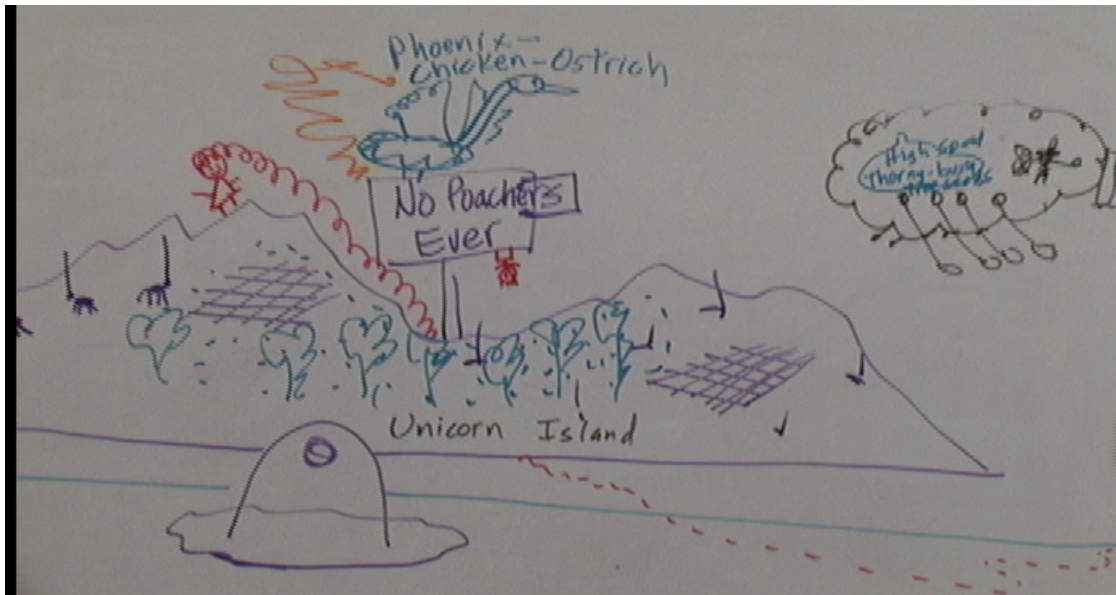 Phoenix-
Chicken-Ostrich
No Poachers
Ever
High-speed
Thorny-burn
tree seeds
Unicorn Island